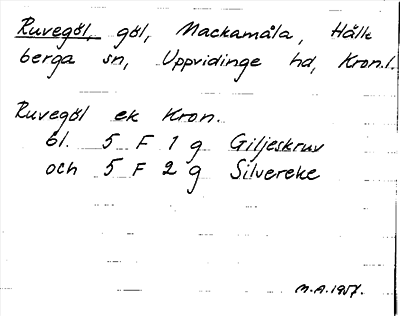 Ruvegöl, göl, Mackamåla, Hälle-
berga sn, Uppvidinge hd, Kron.l.
Ruvegöl ek Kron.
bl. 5 F 1 g Giljeskruv
och 5 F 2 g Silvereke
M.A. 1957.